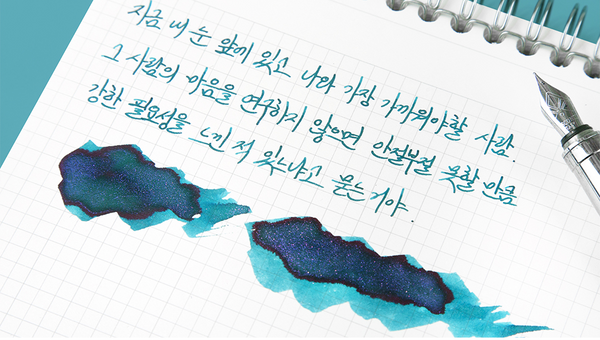 지금 내 눈 앞에 있고 나와 가장 가까워야할 사람.
그 사람의 마음을 연구하지 않으면 안절부절 못할 만큼
강한 필요성을 느낀 적 있느냐고 묻는거야.